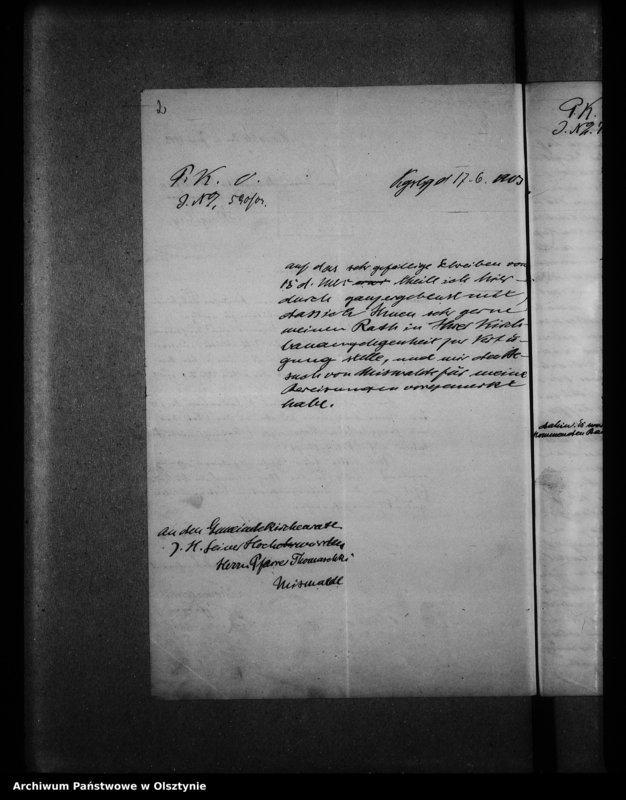 2
P. K.
Kgsbg d 17. 6. 1903
J. No. 590/03.
auf das sehr gefällige Schreiben vom
15 d. Mts theile ich hier-
durch ganz ergebenst mit,
dass ich Ihnen sehr gerne
meinen Rath in Ihrer Kirch-
bauangelegenheit zur Verfü-
gung stelle, und mir den Be-
such von Miswalde für meine
Bereisungen vorgemerkt
habe.
an den Gemeindekirchenrath
z. H. Seiner Hochehrwürden
Herrn Pfarrer Thomaschki
Miswalde
P. K.
J. No.
kommenden
Archiwum Państwowe w Olsztynie